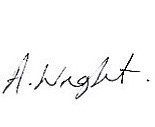 A. Wright.